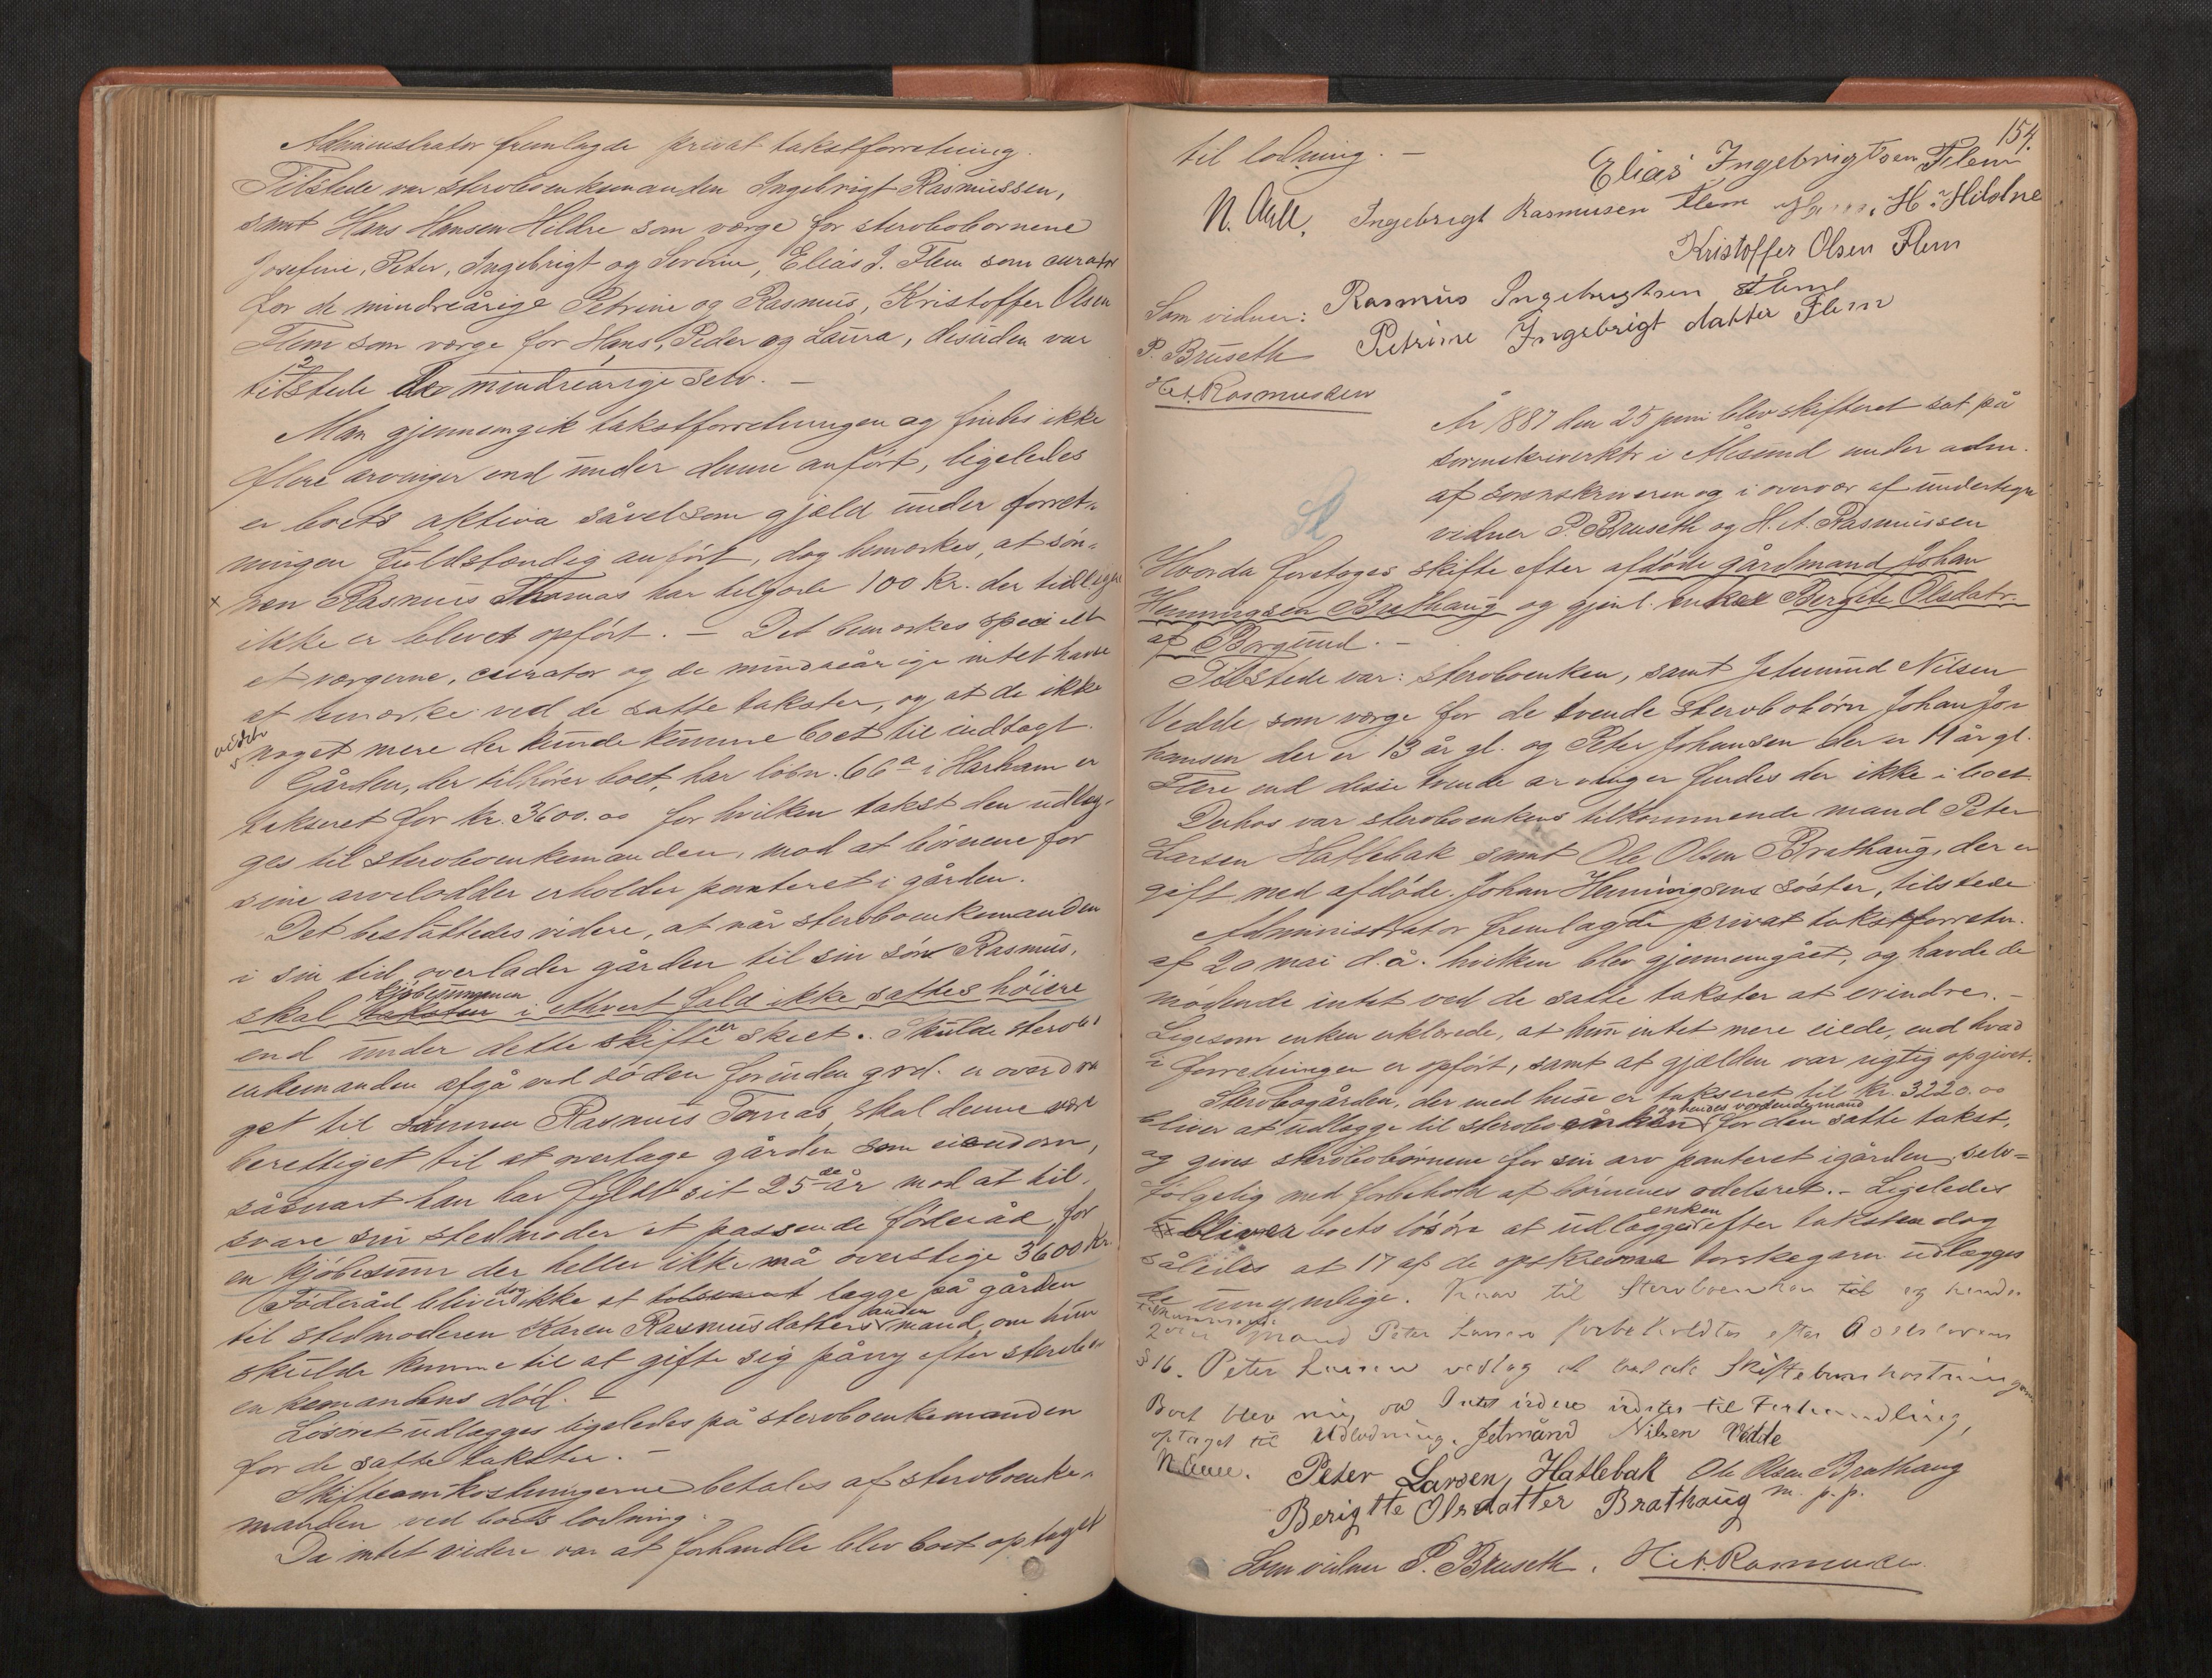 Administrator fremlagde privat takstforretning.
Tilstede var stervboenkemanden Ingebrigt Rasmussen,
samt Hans Hansen Hildre som værge for stervbobørnene
Josefine, Peter, Ingebrigt og Severine, Elias I. Flem som curator
for de mindreårige Petrine og Rasmus, Kristoffer Olsen
Flem som værge for Hans, Peder og Laura, desuden var
tilstede de 2 mindreårige selv. –
Man gjennemgik takstforretningen og findes ikke
flere arvinger end under denne anført, ligeledes
er boets aktiva såvelsom gjæld under forret-
ningen fuldstændig anført, dog bemærkes, at søn-
x nen Rasmus Thomas har tilgode 100 Kr. der tidligere
ikke er blevet opført. – Det bemærkes specielt
at værgerne, curator og de mindreårige intet havde
at bemærke ved de satte takster, og at de ikke
vidste noget mere der kunde komme boet til indtægt.
Gården, der tilhører boet, har løbn. 66a i Harham er
takseret for kr. 3600.00 for hvilken takst den udlæg-
ges til stervboenkemanden, mod at børnene for
sine arvelodder erholder panteret i gården.
Det besluttedes videre, at når stervboenkemanden
i sin tid overlader gården til sin søn Rasmus,
skal taksten kjøbesummen i ethvert fald ikke sættes høiere
end under dette skifte er skeet. Skulde stervbo-
enkemanden afgå ved døden forinden grd. er overdra
get til sønnen Rasmus Tomas, skal denne være
berettiget til at overtage gården som eiendom,
såsnart han har fyldt sit 25de år mod at til-
svare sin stedmoder et passende føderåd for
en kjøbesum der heller ikke må overstige 3600 Kr.
Føderåd bliver dog ikke at lægge på gården
til stedmoderen Karen Rasmusdatters anden mand, om hun
skulde komme til at gifte sig påny efter stervbo-
enkemandens død. –
Løsøret udlægges ligeledes på stervboenkemanden
for de satte takster. –
Skifteomkostningerne betales af stervboenke-
manden ved boets lodning.
Da intet videre var at forhandle blev boet optaget
154.
til lodning. –
Elias Ingebrigtsen Flem
N. Aall. Ingebrigt Rasmusen Flem Hans H. Hildre
Kristoffer Olsen Flem
Som vidner: Rasmus Ingebrigtsen Flem
P. Bruseth Petrine Ingebrigt datter Flem
H.A. Rasmussen
År 1887 den 25 juni blev skifteret sat på
sorenskriverktr i Ålesund under adm.
af sorenskriveren og i overvær af undertegn
vidner P. Bruseth og H.A. Rasmussen
Hvorda foretages skifte efter afdøde gårdmand Johan
Henningsen Brathaug og gjenl. enke Bergete Olsdatr.
af Borgund. –
Tilstede var: stervboenken, samt Jetmund Nilsen
Vedde som værge for de tvende stervbobørn Johan Jo-
hansen der er 13 år gl. og Peter Johansen der er 11 år gl.
Flere end disse tvende arvinger findes der ikke i boet.
Derhos var stervboenkens tilkommende mand Peter
Larsen Hatlebak samt Ole Olsen Brathaug, der er
gift med afdøde Johan Henningsens søster, tilstede
Administrator fremlagde privat takstforretn.
af 20 mai d.å. hvilken blev gjennemgået, og havde de
mødende intet ved de satte takster at erindre. –
Ligesom enken erklærede, at hun intet mere eiede, end hvad
i forretningen er opført, samt at gjælden var rigtig opgivet.
Stervbogården, der med huse er takseret til kr. 3220.00
bliver at udlægge til stervboenken og hendes vordende mand for den satte takst,
og gives stervbobørnene for sin arv panteret i gården, selv-
følgelig med forbehold af børnenes odelsret. – Ligeledes
bliver boets løsøre at udlægge enken efter taksten dog
således at 17 af de opskrevne torskegarn udlægges
de umyndige. til Stervboenken og hendes
tilkommende mand Peter Larsen forbeholdtes efter Odelslovens
§ 16. Peter Larsen vedtog at betale Skifteomkostningerne
Boet blev nu, da Intet videre var til Forhandling,
optaget til Udlodning. Jetmånd Nilsen Vedde
N Aall. Peter Larsen Hatlebak Ole Olsen Brathaug
Berigtte Olsdatter Brathaug m. p. p.
Som vidner P. Bruseth. H.A. Rasmussen